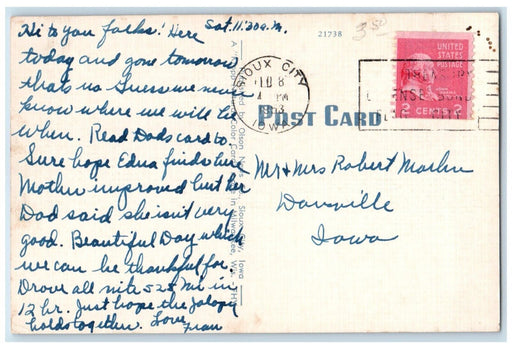 Sat. 11:30 a.m.
Hi to you folks! Here
today and gone tomorrow
thats us Guess we never
know where we will be
when. Read Dads card to
Sure hope Edna finds her
Mother improved but her
Dad said she isn't very
good. Beautiful Day which
we can be thankful for.
Drove all nite 525 mi in
12 hr. Just hope the jalopy
holds together. Love
Fran
21738
SIOUX CITY
PM
IOWA
UNITED
STATES
POSTAGE
2 CENTS 2
POST CARD
Mr & Mrs Robert
Iowa